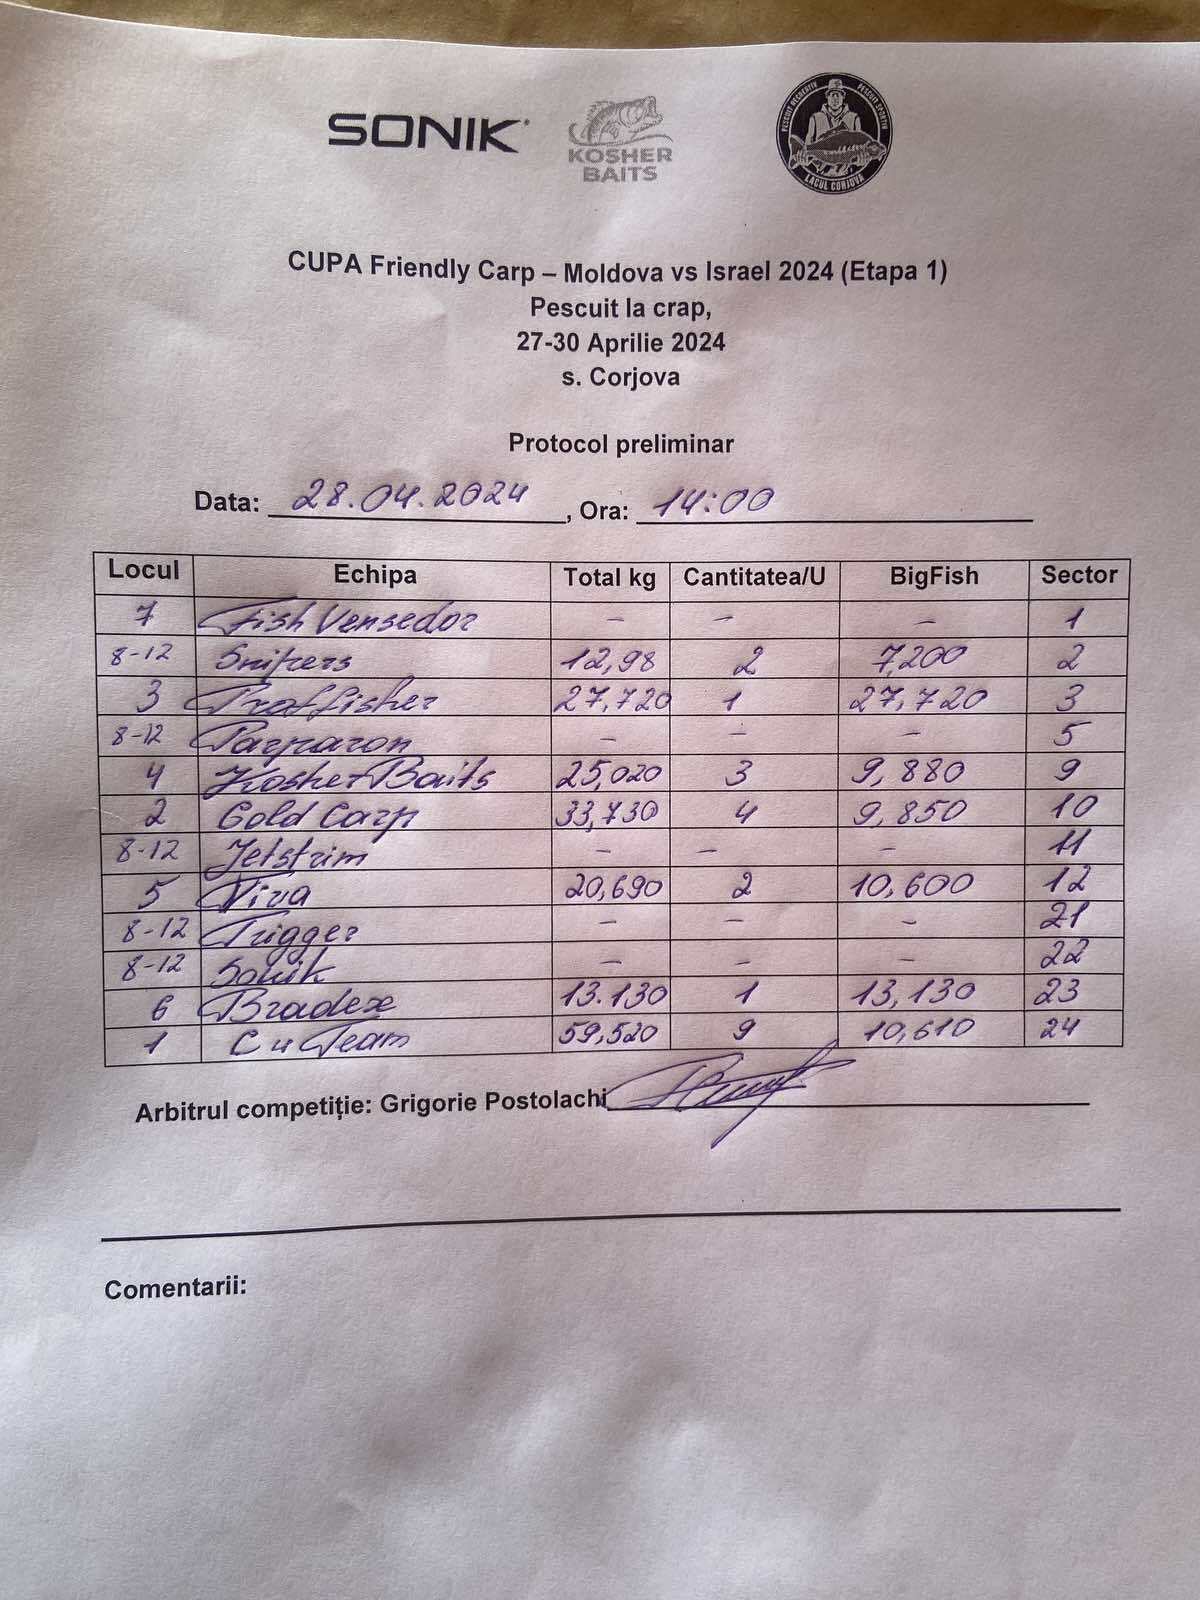 SONIK
KOSHER
BAITS
PESCUIT RECREATIV PESCUIT SPORTIV
LACUL CORJOVA
CUPA Friendly Carp – Moldova vs Israel 2024 (Etapa 1)
Pescuit la crap,
27-30 Aprilie 2024
s. Corjova
Protocol preliminar
Data: 28.04.2024, Ora: 14:00
Locul Echipa Total kg Cantitatea/U BigFish Sector
7 Fish Vensedor – – – 1
8-12 Snipers 12,98 2 7,200 2
3 Proffisher 27,720 1 27,720 3
8-12 Parparon – – – 5
4 Kosher Baits 25,020 3 9,880 9
2 Gold Carp 33,730 4 9,850 10
8-12 Jetstrim – – – 11
5 Viva 20,690 2 10,600 12
8-12 Trigger – – – 21
8-12 Sonik – – – 22
6 Bradex 13.130 1 13,130 23
1 C 4 Team 59,520 9 10,610 24
Arbitrul competiție: Grigorie Postolachi
Comentarii: